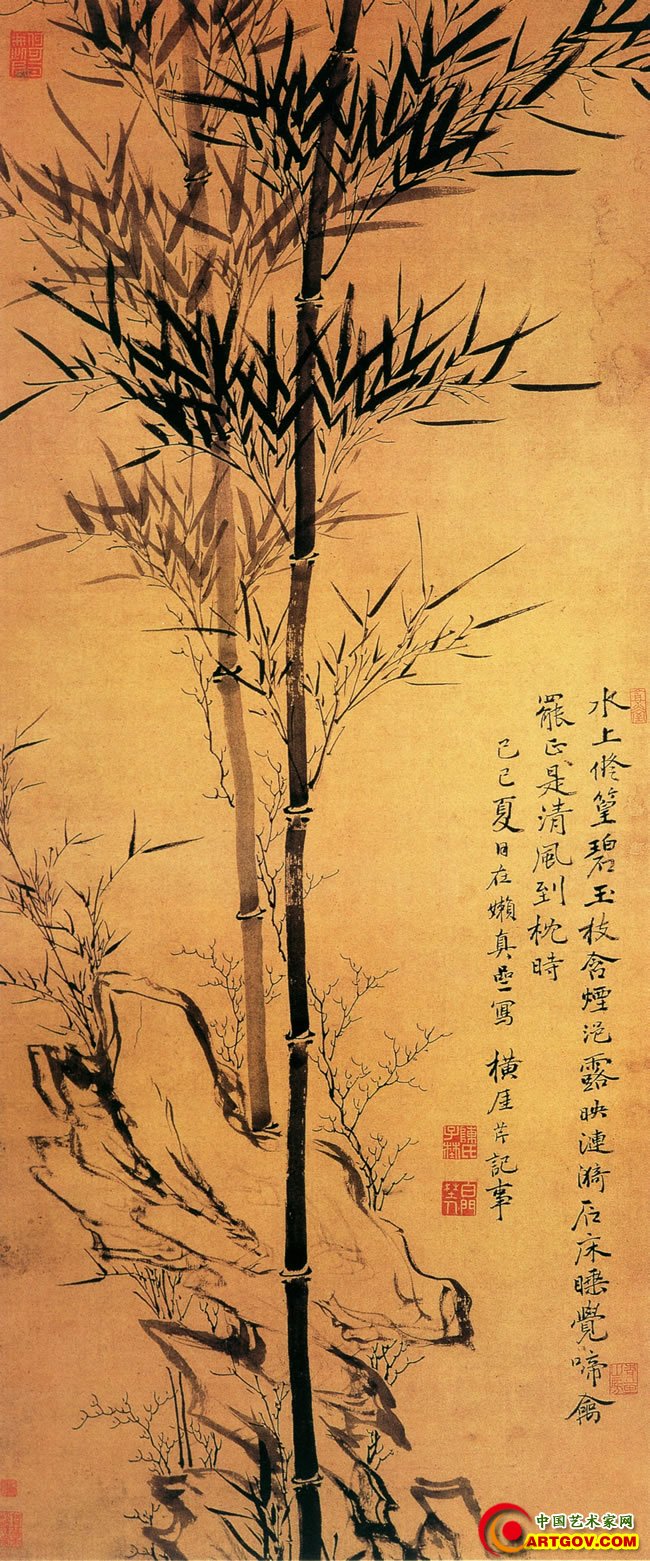 水上修篁碧玉枝含煙浥露映漣漪石床睡覺啼禽
罷正是清風到枕時
己巳夏日在嬾真草堂寫 橫厓芹記事
陳氏子埜
白門埜人
中国艺术家网
ARTGOV.COM